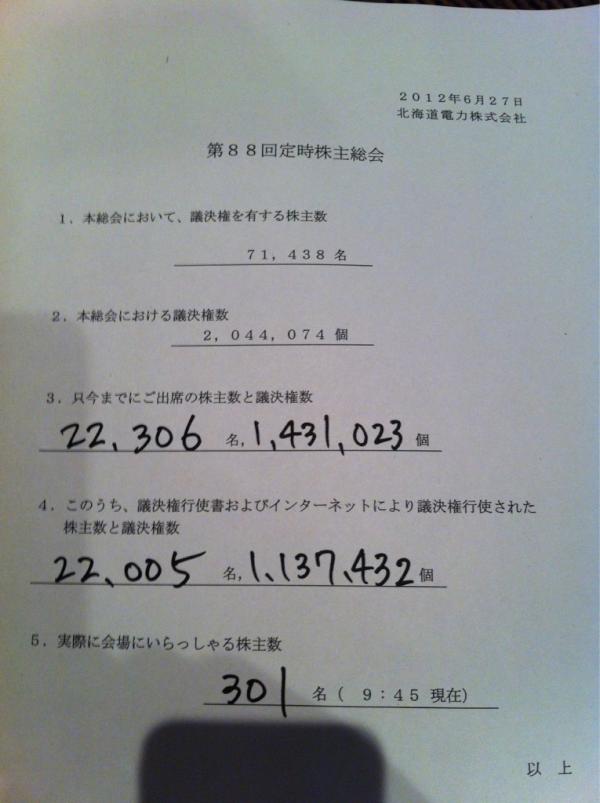 2012年6月27日
北海道電力株式会社
第88回定時株主総会
1．本総会において、議決権を有する株主数
71,438 名
2．本総会における議決権数
2,044,074 個
3．只今までにご出席の株主数と議決権数
22,306 名, 1,431,023 個
4．このうち、議決権行使書およびインターネットにより議決権行使された
株主数と議決権数
22,005 名, 1,137,432 個
5．実際に会場にいらっしゃる株主数
301 名（ 9：45 現在）
以 上